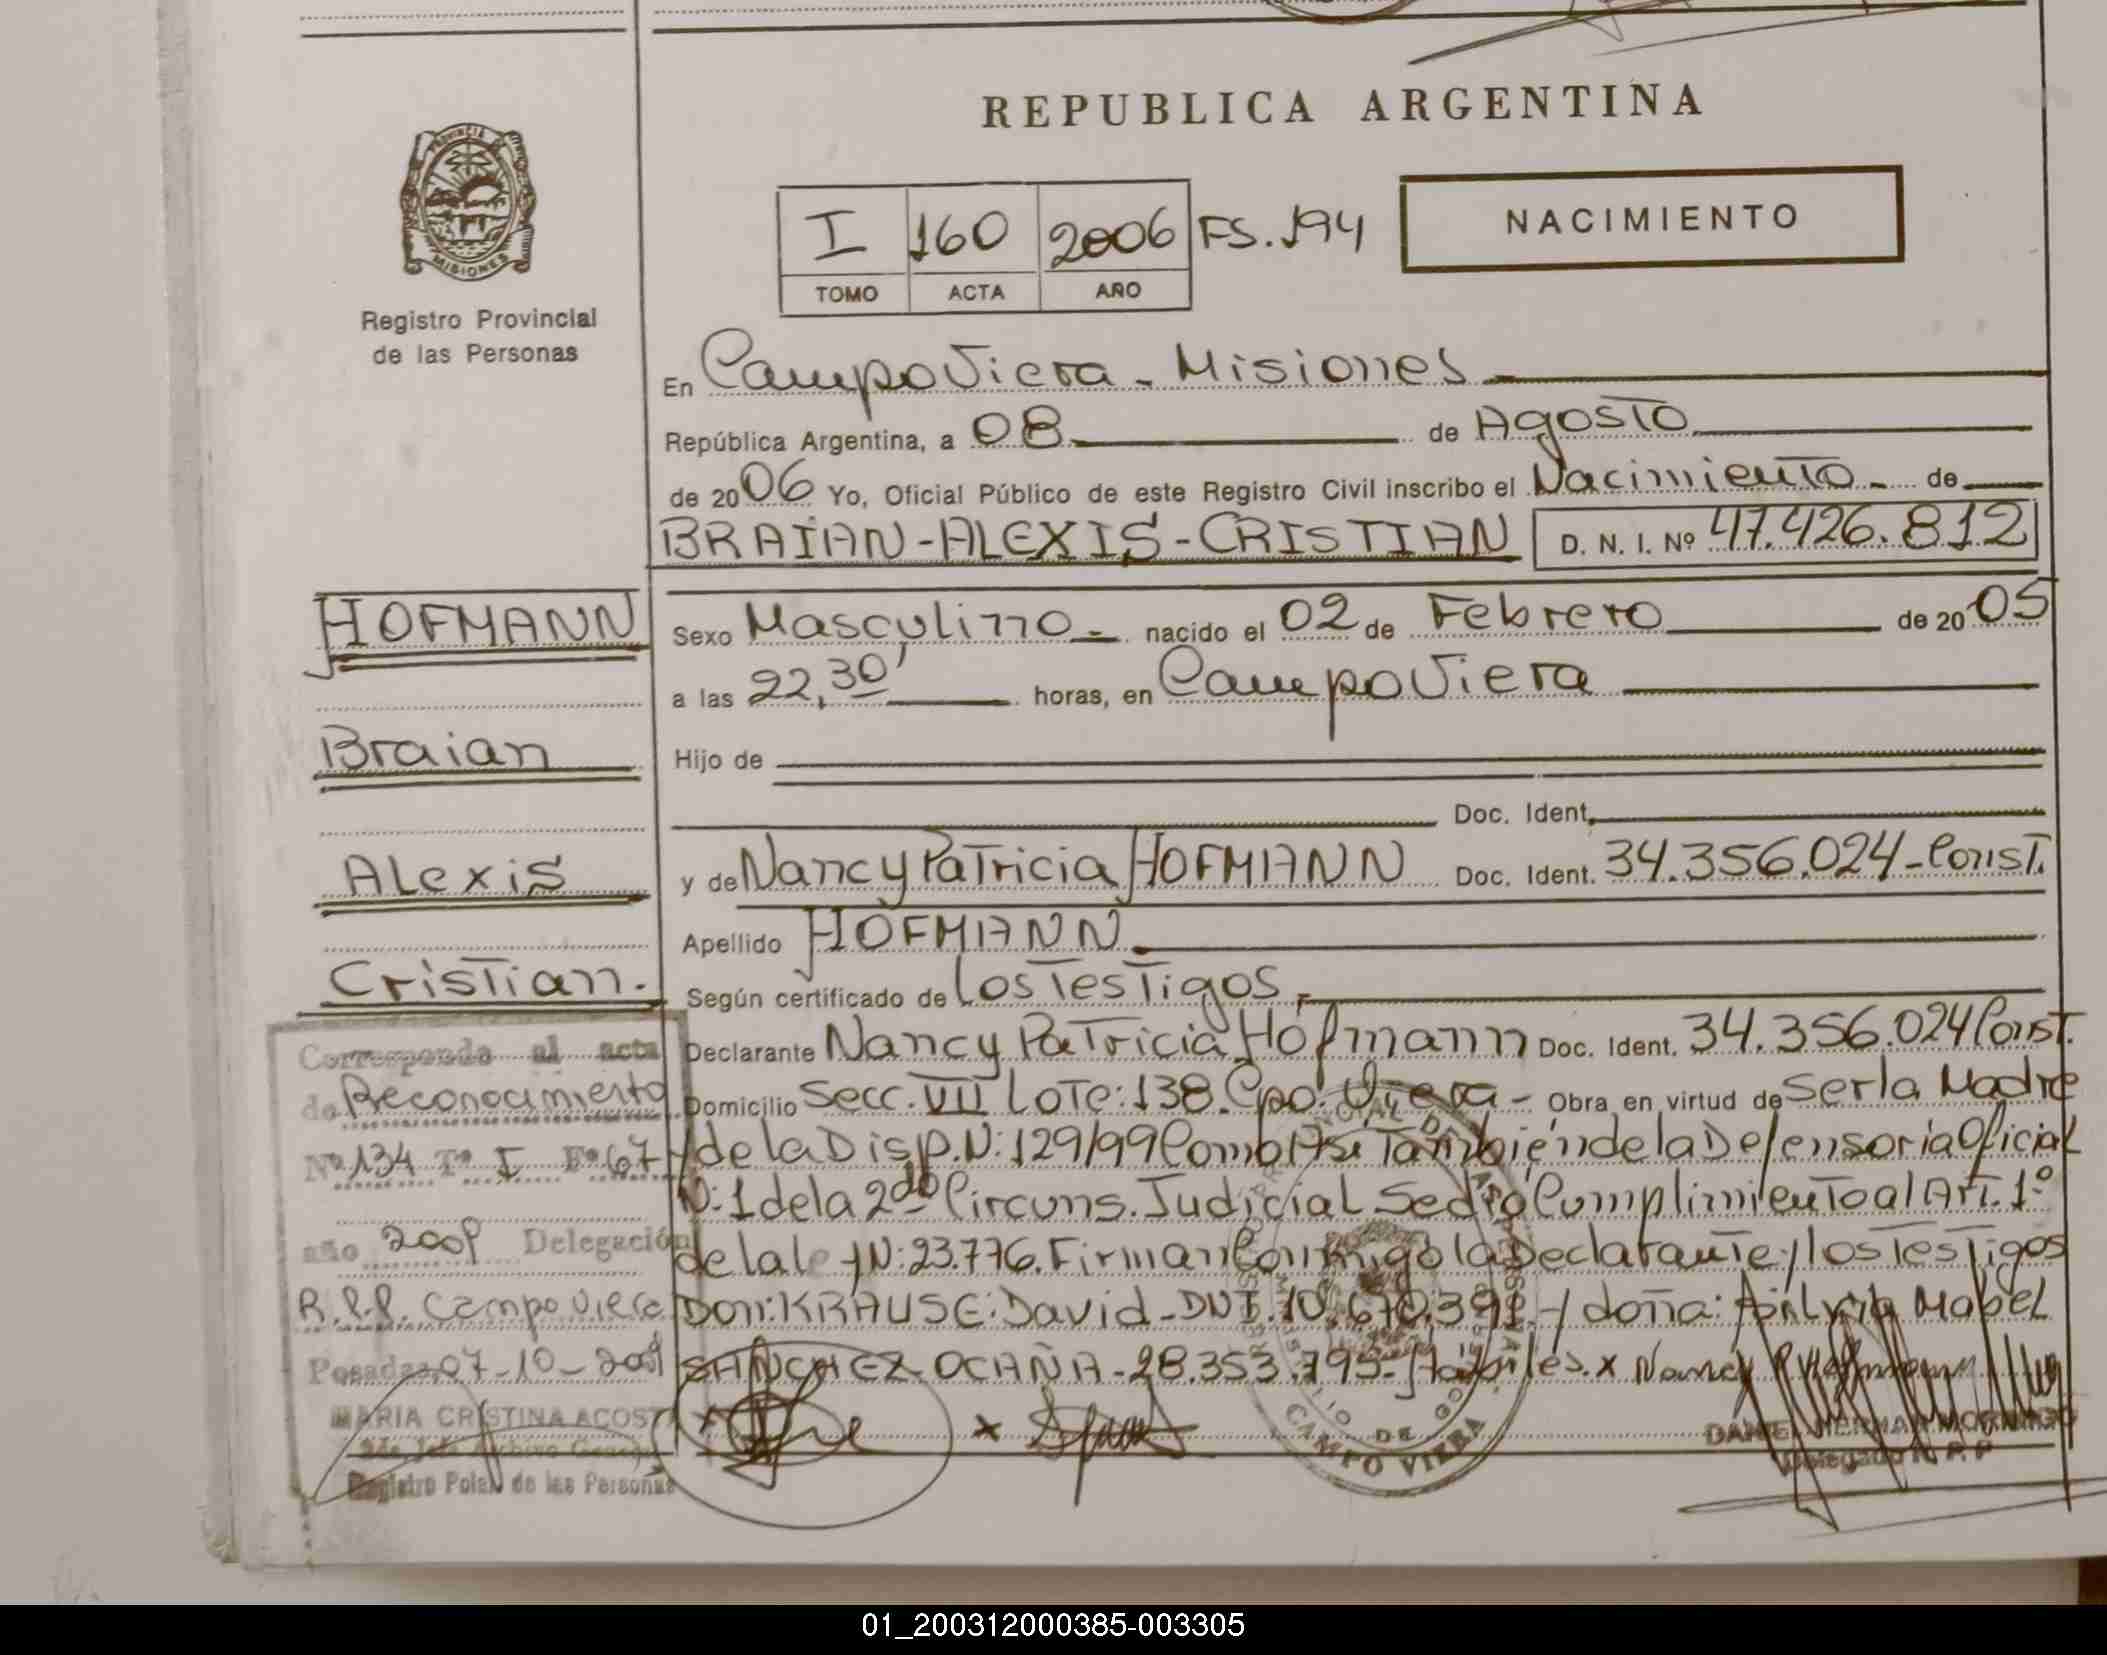 REPUBLICA ARGENTINA
PROVINCIA
MISIONES
Registro Provincial
de las Personas
I 160 2006 FS. 194
TOMO ACTA AÑO
NACIMIENTO
En Campo Viera - Misiones
República Argentina, a 08 de Agosto
de 2006 Yo, Oficial Público de este Registro Civil inscribo el Nacimiento - de
BRAIAN-ALEXIS-CRISTIAN D. N. I. Nº 47.426.812
HOFMANN
Braian
Alexis
Cristian.
Sexo Masculino - nacido el 02 de Febrero de 2005
a las 22,30' horas, en Campo Viera
Hijo de
Doc. Ident.
y de Nancy Patricia HOFMANN Doc. Ident. 34.356.024-Const.
Apellido HOFMANN
Según certificado de Los Testigos
Declarante Nancy Patricia Hofmann Doc. Ident. 34.356.024 Const.
Domicilio Secc. VII Lote: 138. Cpo. Viera - Obra en virtud de Ser la Madre
y de la Disp. N: 129/99 Como Asi Tambien de la Defensoria Oficial
N: 1 de la 2da Circuns. Judicial Se dio Cumplimiento al Art. 1º
de la ley N: 23.776. Firman Conmigo la Declarante y los Testigos
Don: KRAUSE: David - DNI. 10.670.391 - y doña: Silvia Mabel
SANCHEZ OCAÑA - 28.353.795 - Habiles. x Nancy P. Hofmann
x x
Corresponde al acta
de Reconocimiento
Nº 134 Tº I Fº 67
año 2009 Delegación
R.P.P. Campo Viera
Posadas, 07-10-2009
MARIA CRISTINA ACOSTA
2da Jefe Archivo General
Registro Pcial. de las Personas
CAMPO VIERA
DANIEL HERNAN MORINIGO
Delegado R. P. P
01_200312000385-003305